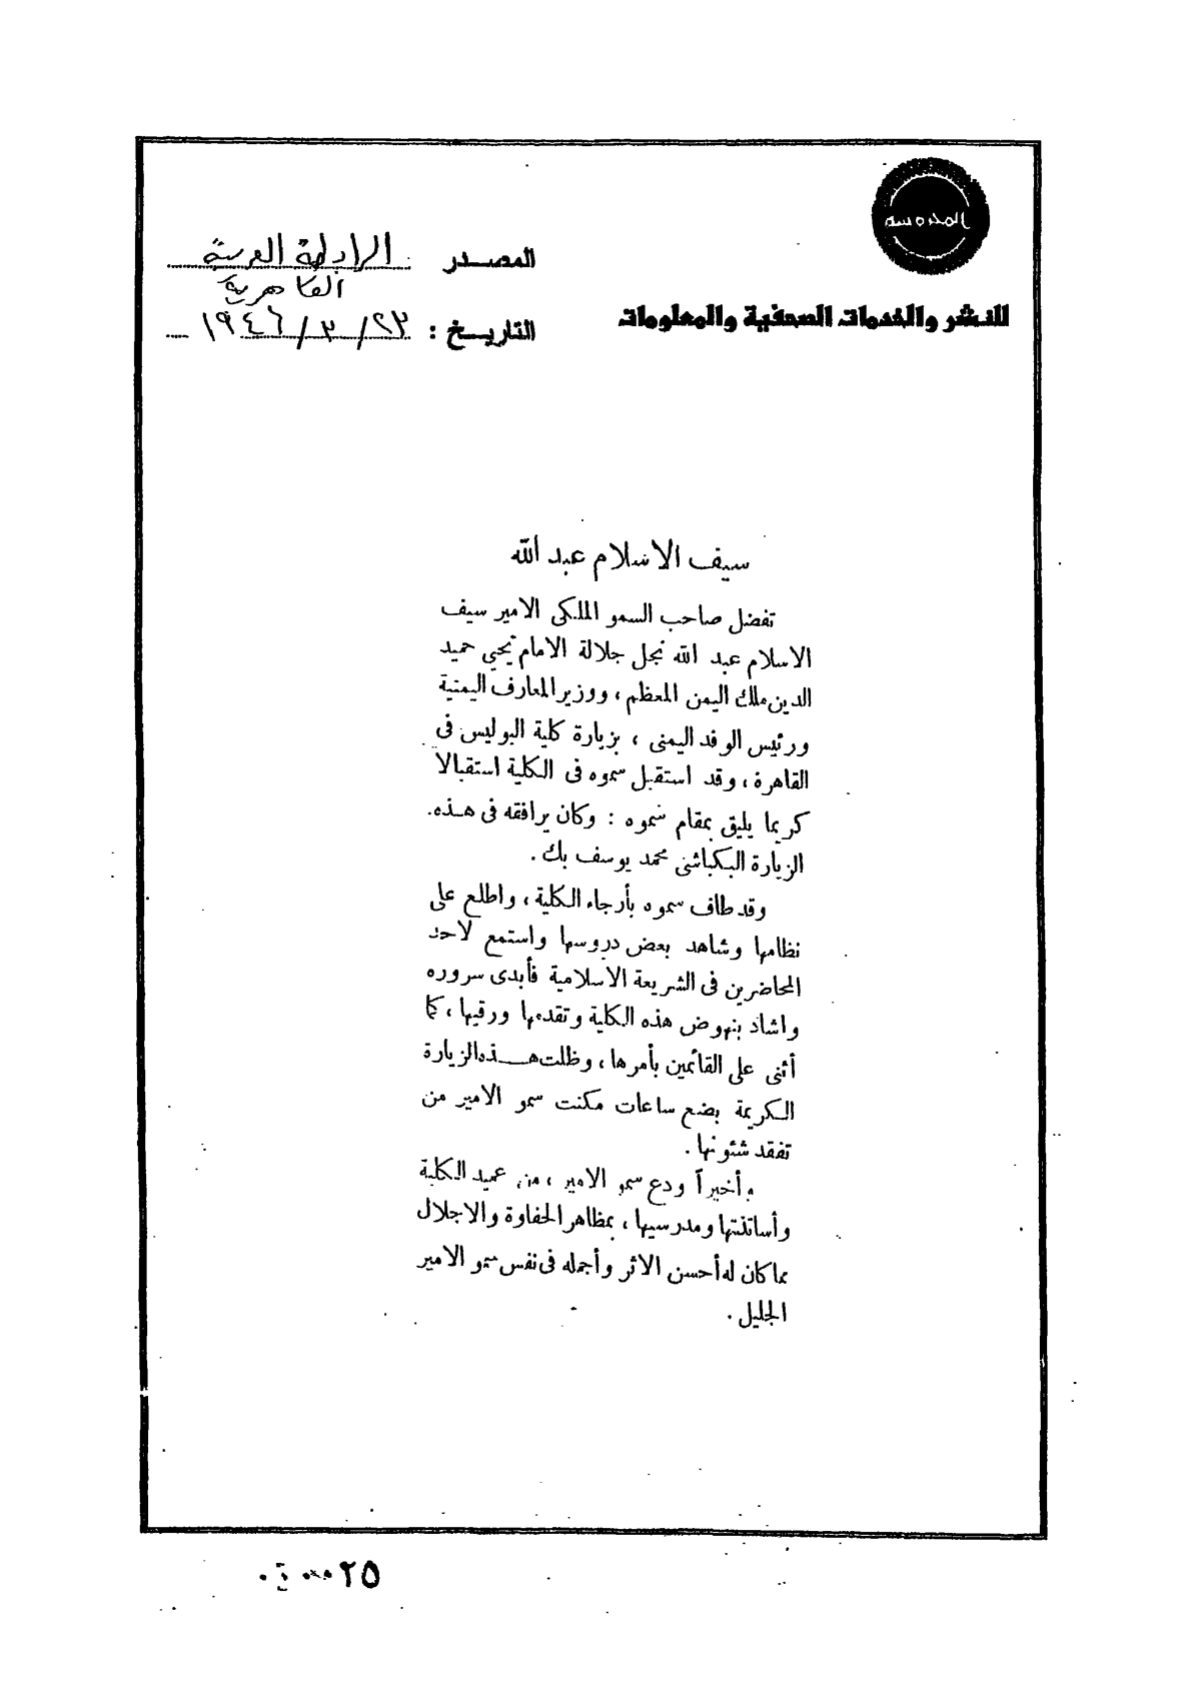 المحروسة
للنشر والخدمات الصحفية والمعلومات
المصدر الرابطة العربية
القاهرية
التاريخ : ٢٣/٣/١٩٤٦
سيف الاسلام عبد الله
تفضل صاحب السمو الملكى الامير سيف
الاسلام عبد الله نجل جلالة الامام يحيي حميد
الدين ملك اليمن المعظم ، ووزير المعارف اليمنية
ورئيس الوفد اليمنى ، بزيارة كلية البوليس فى
القاهرة ، وقد استقبل سموه فى الكلية استقبالا
كريما يليق بمقام سموه : وكان يرافقه فى هذه
الزيارة البكباشى محمد يوسف بك .
وقد طاف سموه بأرجاء الكلية ، واطلع على
نظامها وشاهد بعض دروسها واستمع لاحد
المحاضرين فى الشريعة الاسلامية فأبدى سروره
واشاد بنهوض هذه الكلية وتقدمها ورقيها ، كما
أثنى على القائمين بأمرها ، وظلت هذه الزيارة
الكريمة بضع ساعات مكنت سمو الامير من
تفقد شئونها .
وأخيراً ودع سمو الامير ، من عميد الكلية
وأساتذتها ومدرسيها ، بمظاهر الحفاوة والاجلال
مما كان له أحسن الاثر وأجمله فى نفس سمو الامير
الجليل .